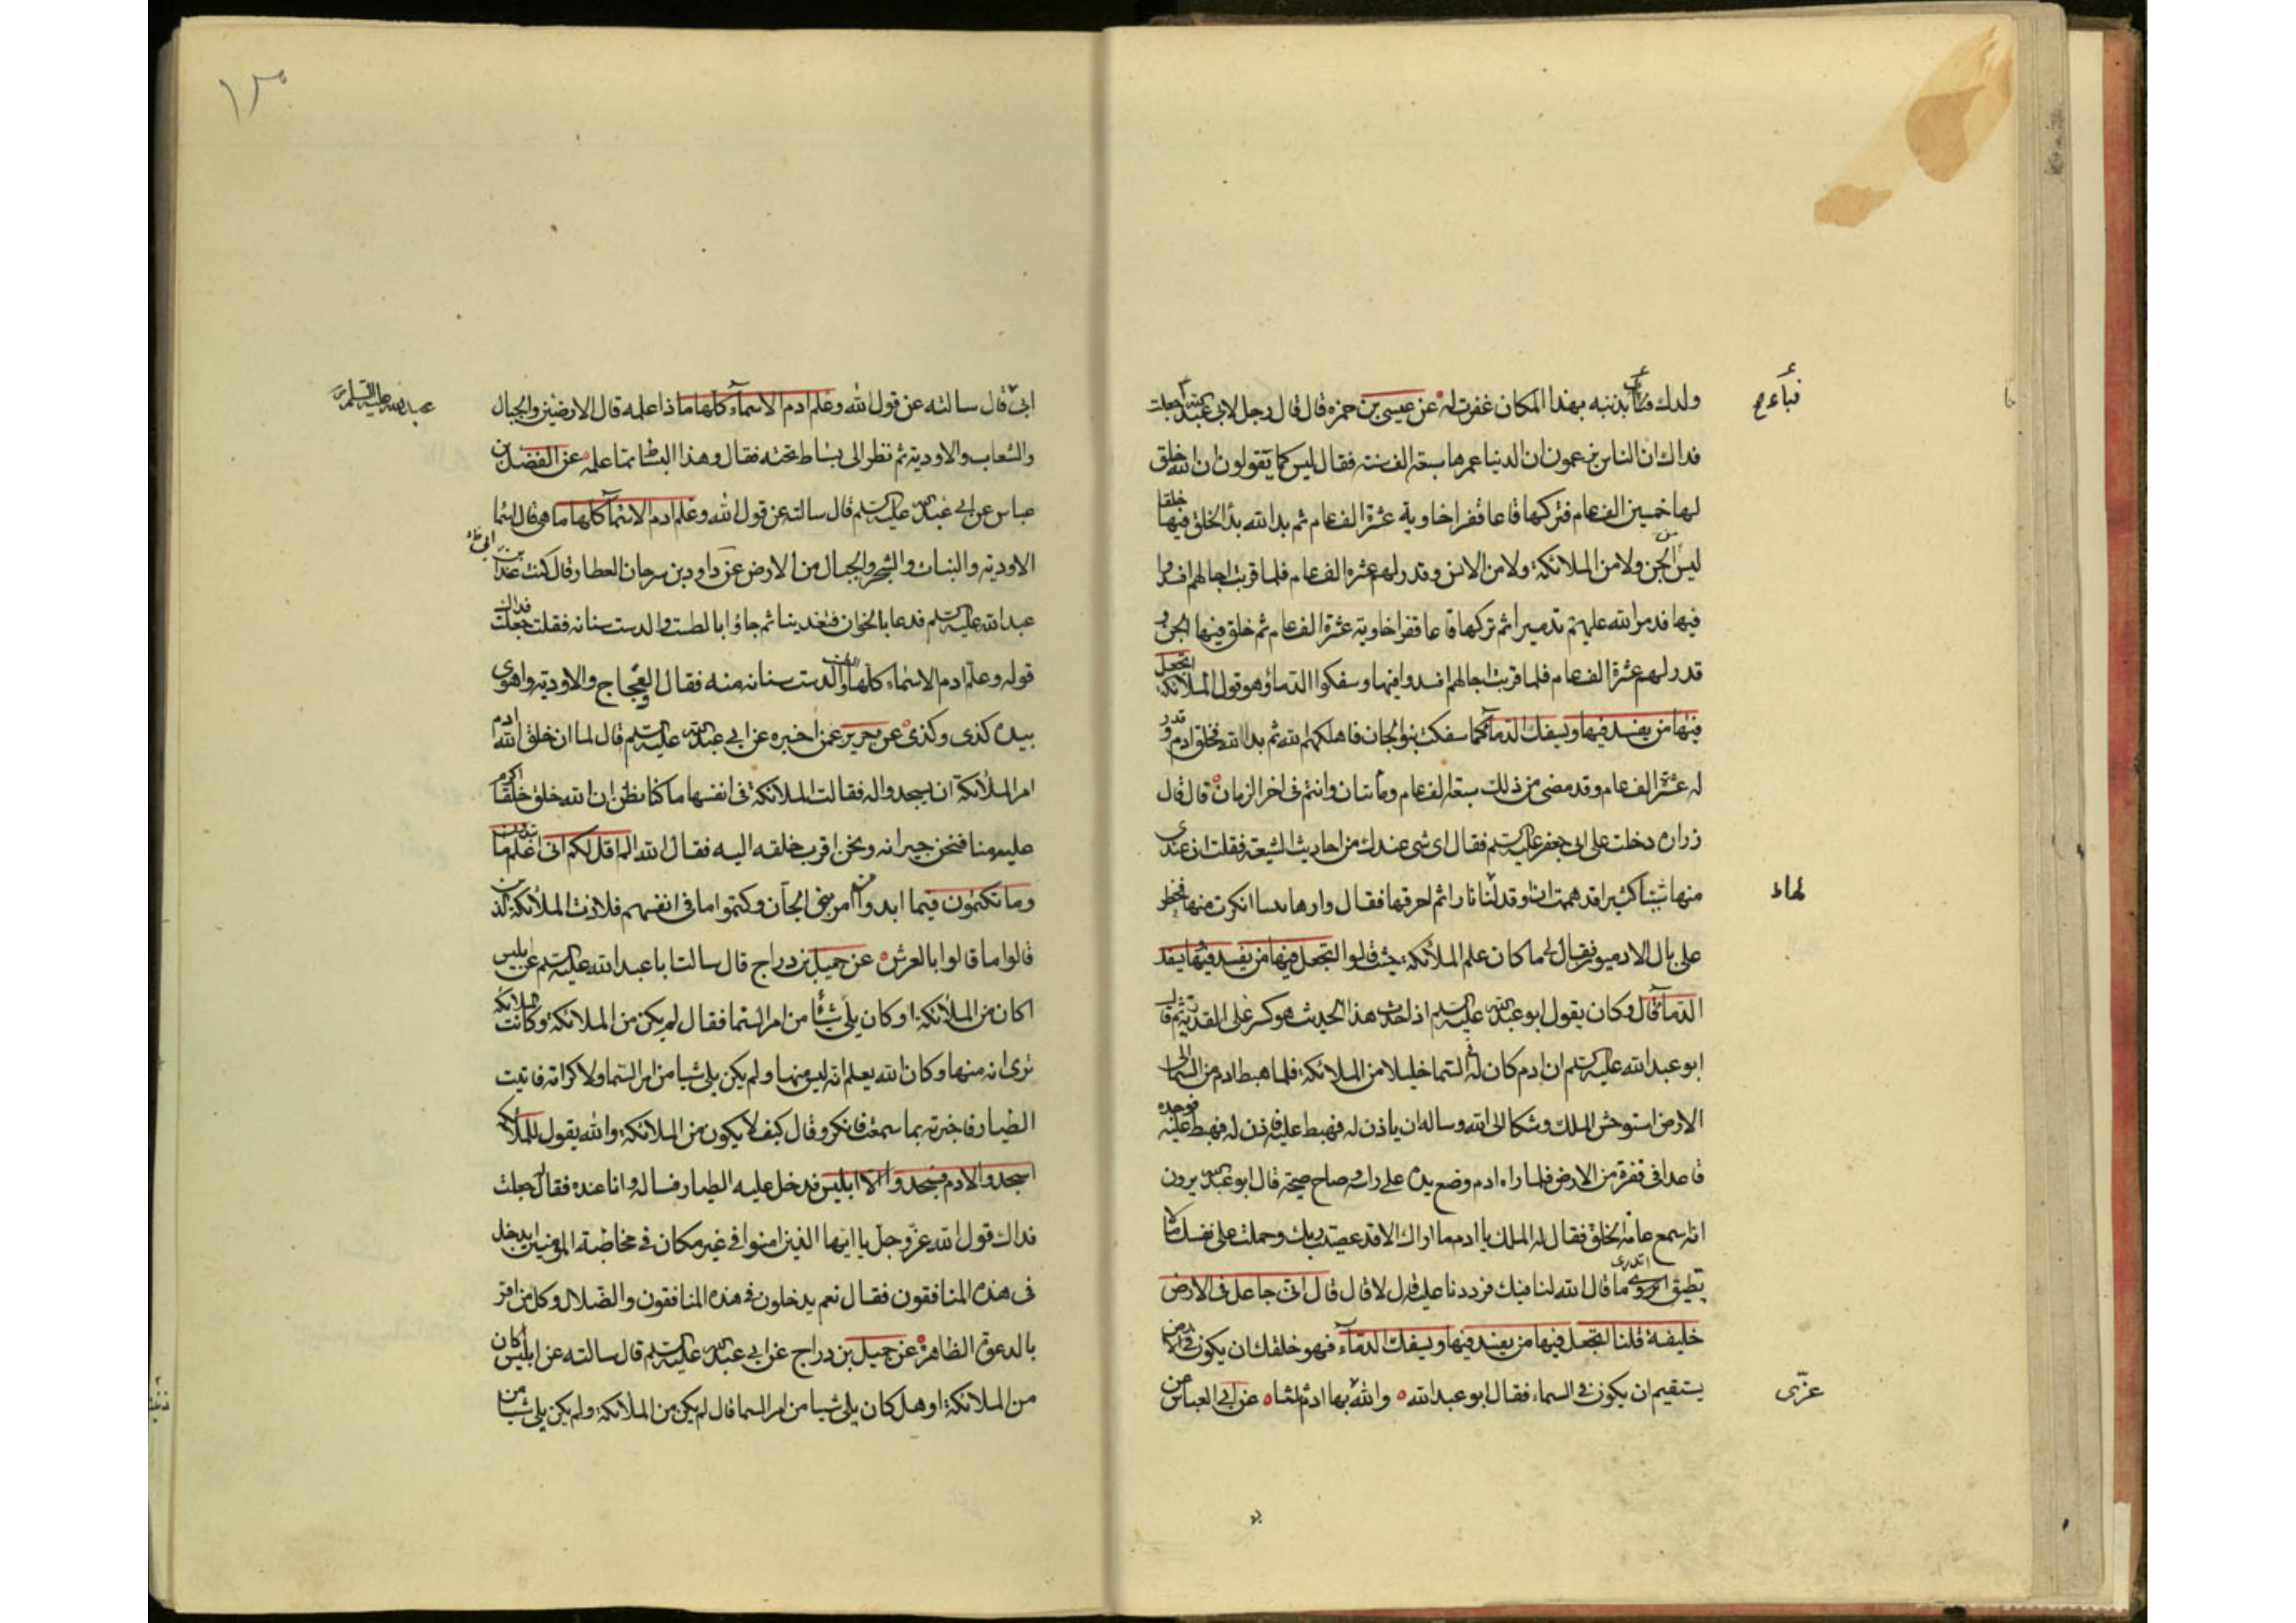 ولدك فباء بذنبه بهذا المكان غفرت له عن عيسى بن حمزه قال قال رجل لابي عبد الله جعلت
فداك ان الناس يزعمون ان الدنيا عمرها سبعة الف سنة فقال ليس كما يقولون ان الله خلق
لها خمسين الف عام فتركها قاعا قفرا خاوية عشرة الف عام ثم بدا لله بدأ الخلق فيها خلقا
ليس من الجن ولا من الملائكة ولا من الانس وقدر لهم عشرة الف عام فلما قربت اجالهم افسدوا
فيها فدمر الله عليهم تدميرا ثم تركها قاعا قفرا خاوية عشرة الف عام ثم خلق فيها الجن و
قدر لهم عشرة الف عام فلما قربت اجالهم افسدوا فيها وسفكوا الدماء وهو قول الملائكة اتجعل
فيها من يفسد فيها ويسفك الدماء كما سفكت بنو الجان فاهلكهم الله ثم بدا لله فخلق ادم وقدر
له عشرة الف عام وقد مضى من ذلك سبعة الف عام ومائتان وانتم في اخر الزمان قال قال
زرارة دخلت على ابي جعفر عليه السلم فقال اى شى عندك من احاديث الشيعة فقلت ان عندى
منها شيئا كثيرا قد هممت ان اوقد لها نارا ثم احرقها فقال وارها ننسا انكرت منها فخطر
على بال الادميون فقال لي ما كان علم الملائكة حيث قالوا اتجعل فيها من يفسد فيها ويسفك
الدماء قال وكان يقول ابو عبد الله عليه السلم اذا حدث هذا الحديث هو كسر على القدرية ثم قال
ابو عبد الله عليه السلم ان ادم كان له في السما خليلا من الملائكة فلما هبط ادم من السما الى
الارض استوحش الملك وشكا الى الله وساله ان ياذن له فيهبط عليه فاذن له فهبط عليه فوجده
قاعدا في قفرة من الارض فلما راه ادم وضع يده على راسه وصاح صيحة قال ابو عبد الله يرون
انه سمع عامة الخلق فقال له الملك يا ادم ما اراك الا قد عصيت ربك وحملت على نفسك ما لا
تطيق اتدرى ما قال الله لنا فيك فرددنا عليه قال لا قال قال انى جاعل في الارض
خليفة قلنا اتجعل فيها من يفسد فيها ويسفك الدماء فهو خلقك ان يكون في الارض
يستقيم ان يكون في السماء فقال ابو عبد الله والله بها ادم ثلثا عن ابي العباس
فباء
عزّى
ابي قال سالته عن قول الله وعلم ادم الاسماء كلها ماذا علمه قال الارضين والجبال
عبد الله عليه السلم
والشعاب والاودية ثم نظر الى بساط تحته فقال وهذا البساط مما علمه عن الفضل بن
عباس عن ابي عبد الله عليه السلم قال سالته عن قول الله وعلم ادم الاسماء كلها ما هي قال اسما
الاودية والنبات والشجر والجبال من الارض عن داود بن سرحان العطار قال كنت عند ابي
عبد الله عليه السلم فدعا بالخوان فتغدينا ثم جاؤا بالطست والدست سنانه فقلت جعلت فداك
قوله وعلم ادم الاسماء كلها الطست والدست سنانه منه فقال الفجاج والاودية واهوى
بيده كذى وكذى عن حريز عمن اخبره عن ابي عبد الله عليه السلم قال لما ان خلق الله ادم
امر الملائكة ان يسجدوا له فقالت الملائكة في انفسها ما كنا نظن ان الله خلق خلقا اكرم
عليه منا فنحن جيرانه ونحن اقرب خلقه اليه فقال الله الم اقل لكم انى اعلم ما تبدون
وما تكتمون فيما ابدوا من امر بني الجان وكتموا ما في انفسهم فلاذت الملائكة الذين
قالوا ما قالوا بالعرش عن جميل بن دراج قال سالت ابا عبد الله عليه السلم عن ابليس
اكان من الملائكة او كان يلى شيئا من امر السما فقال لم يكن من الملائكة وكانت الملائكة
ترى انه منها وكان الله يعلم انه ليس منها ولم يكن يلى شيا من امر السما ولا كرامة فاتيت
الطيار فاخبرته بما سمعت فانكر وقال كيف لا يكون من الملائكة والله يقول للملائكة
اسجدوا لادم فسجدوا الا ابليس فدخل عليه الطيار فساله وانا عنده فقال له جعلت
فداك قول الله عز وجل يا ايها الذين امنوا في غير مكان في مخاطبة المومنين ايدخل
في هذه المنافقون فقال نعم يدخلون في هذه المنافقون والضلال وكل من اقر
بالدعوة الظاهرة عن جميل بن دراج عن ابي عبد الله عليه السلم قال سالته عن ابليس اكان
من الملائكة او هل كان يلى شيا من امر السما قال لم يكن من الملائكة ولم يكن يلى شيا من